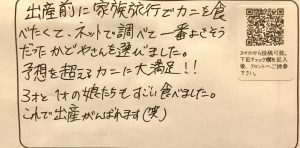 出産前に家族旅行でカニを食
べたくて、ネットで調べて一番よさそう
だったかどやさんを選びました。
予想を超えるカニに大満足!!
3才と1才の娘たちもすごい食べました。
これで出産がんばれます(笑)
スマホから投稿可能。
下記チェック欄を記入
後、フロントへご持参
下さい。